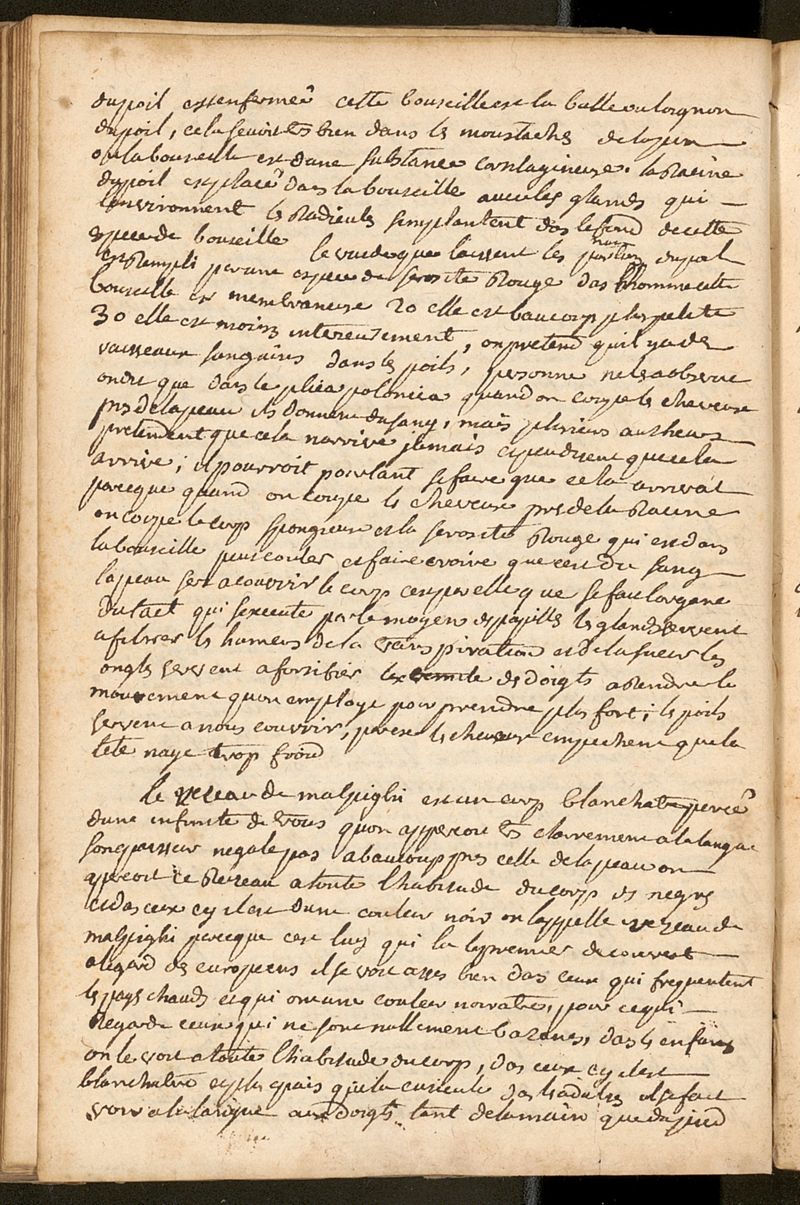 du poil est enfermeé cette bouteille est la bulle ou loignon
du poil, cela se voit tres bien dans les moustaches
ou la bouteille est dune substance cartilagineuse. la Racine
du poil est placeé dans la bouteille avec les glandes qui
lenvironnent les Radicules simplantent dans le fond de cette
espece de bouteille le vuide que laissent les parties du poil
est Rempli par une espece de serosite Rouge dans lhomme cette
bouteille est membraneuse 2o elle est beaucoup plus petite
3o elle est moins interieurement, on pretend quil y a des
vaisseaux sanguins dans les poils, personne ne les a observe
on dit que dans le plica polonica quand on coupe les cheveux
pres de la peau ils donnent du sang, mais plusieurs autheurs
pretendent que cela narrive jamais cependient que cela
arrive; il pourroit pourtant se faire que cela arrivat
parceque quand on coupe les cheveux pres de la Racine
on coupe le corp spongieux et la serosité Rouge qui est dans
la bouteille peut couler et faire croire que cest du sang
la peau sert a couvrir le corp cest par elle que se fait lorgane
du tact qui sexecute par le moyen des papilles les glandes servent
a filtrer les humeurs de la transpiration et de la sueur les
ongles servent a fortifier lextremité des doigts a rendre le
mouvement quon employe pour prendre plus fort; les poils
servent a nous couvrir, les cheveux empechent que la
tete naye trop froid
le rezeau de malpighi est un corp blanchatre perceé
dune infinite de trous quon appercoit tres clairement a la langue
son epaisseur negale pas a beaucoup pres celle de la peau on
appercoit ce Rezeau a toute lhabitude du corp des negres
et dans ceux cy il est dune couleur noir on lappelle rezeau de
malpighi parceque cest luy qui la le premier decouvert
a legard des europeens il se voit asses bien dans ceux qui frequentent
les pays chauds et qui ont une couleur noiratre, pour ce qui
Regarde ceux qui ne sont nullement bazanes, dans les enfans
on le voit a toute lhabitude du corp, dans ceux cy il est
blanchatre et plus epais que la cuticule dans les adultes il se fait
voir a la langue aux doigts tant de la main que du pied